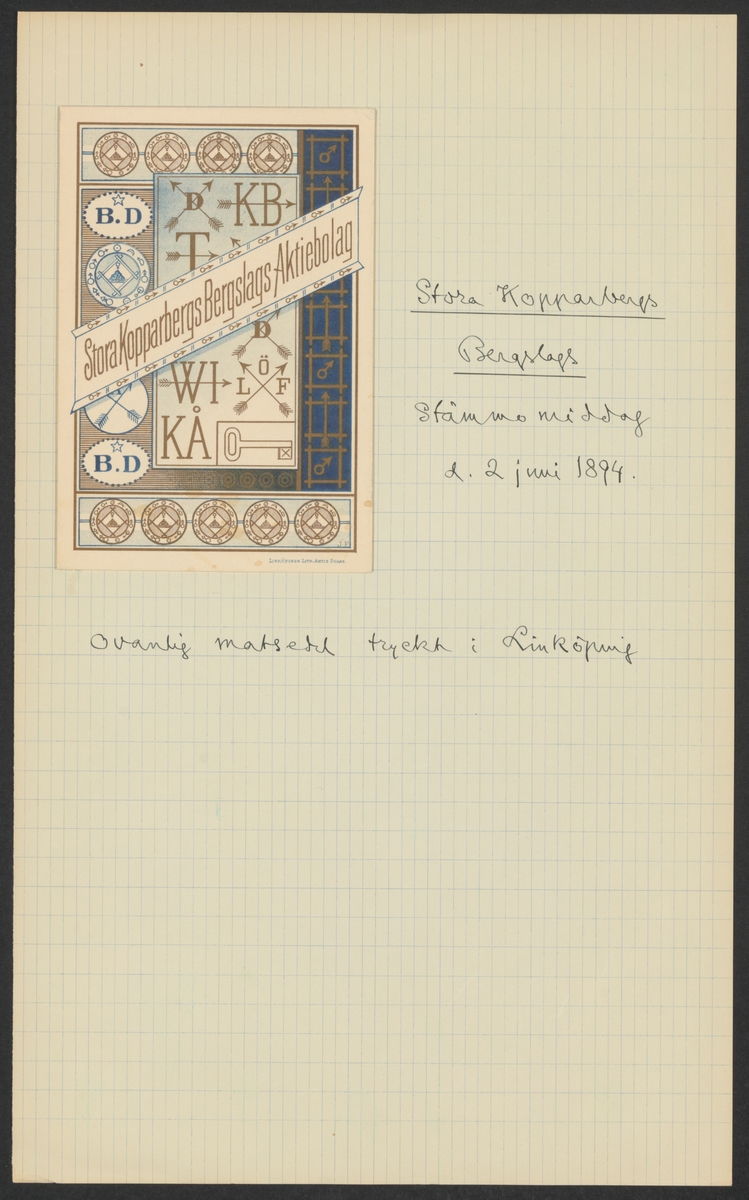 D
KB
B.D
T
Stora Kopparbergs Bergslags Aktiebolag
D
WI
Ö
L F
KÅ
B.D
Stora Kopparbergs
Bergslags
Stämmomiddag
d. 2 juni 1894.
Ovanlig matsedel tryckt i Linköping